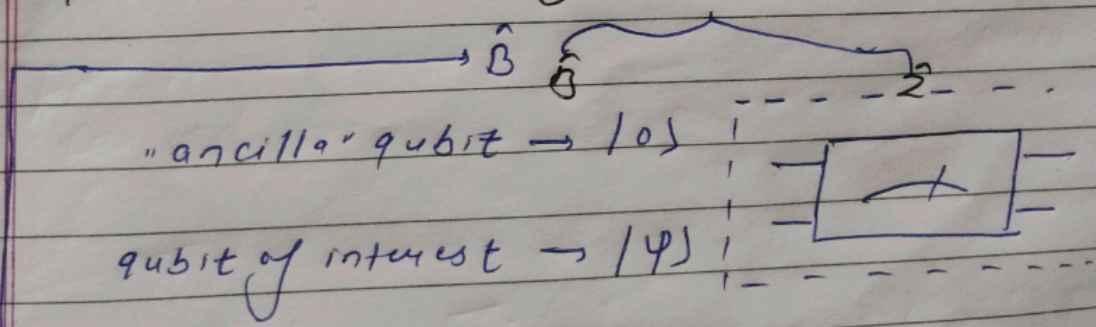 B̂ B̂ Ẑ
"ancilla" qubit → |0⟩
qubit of interest → |ψ⟩